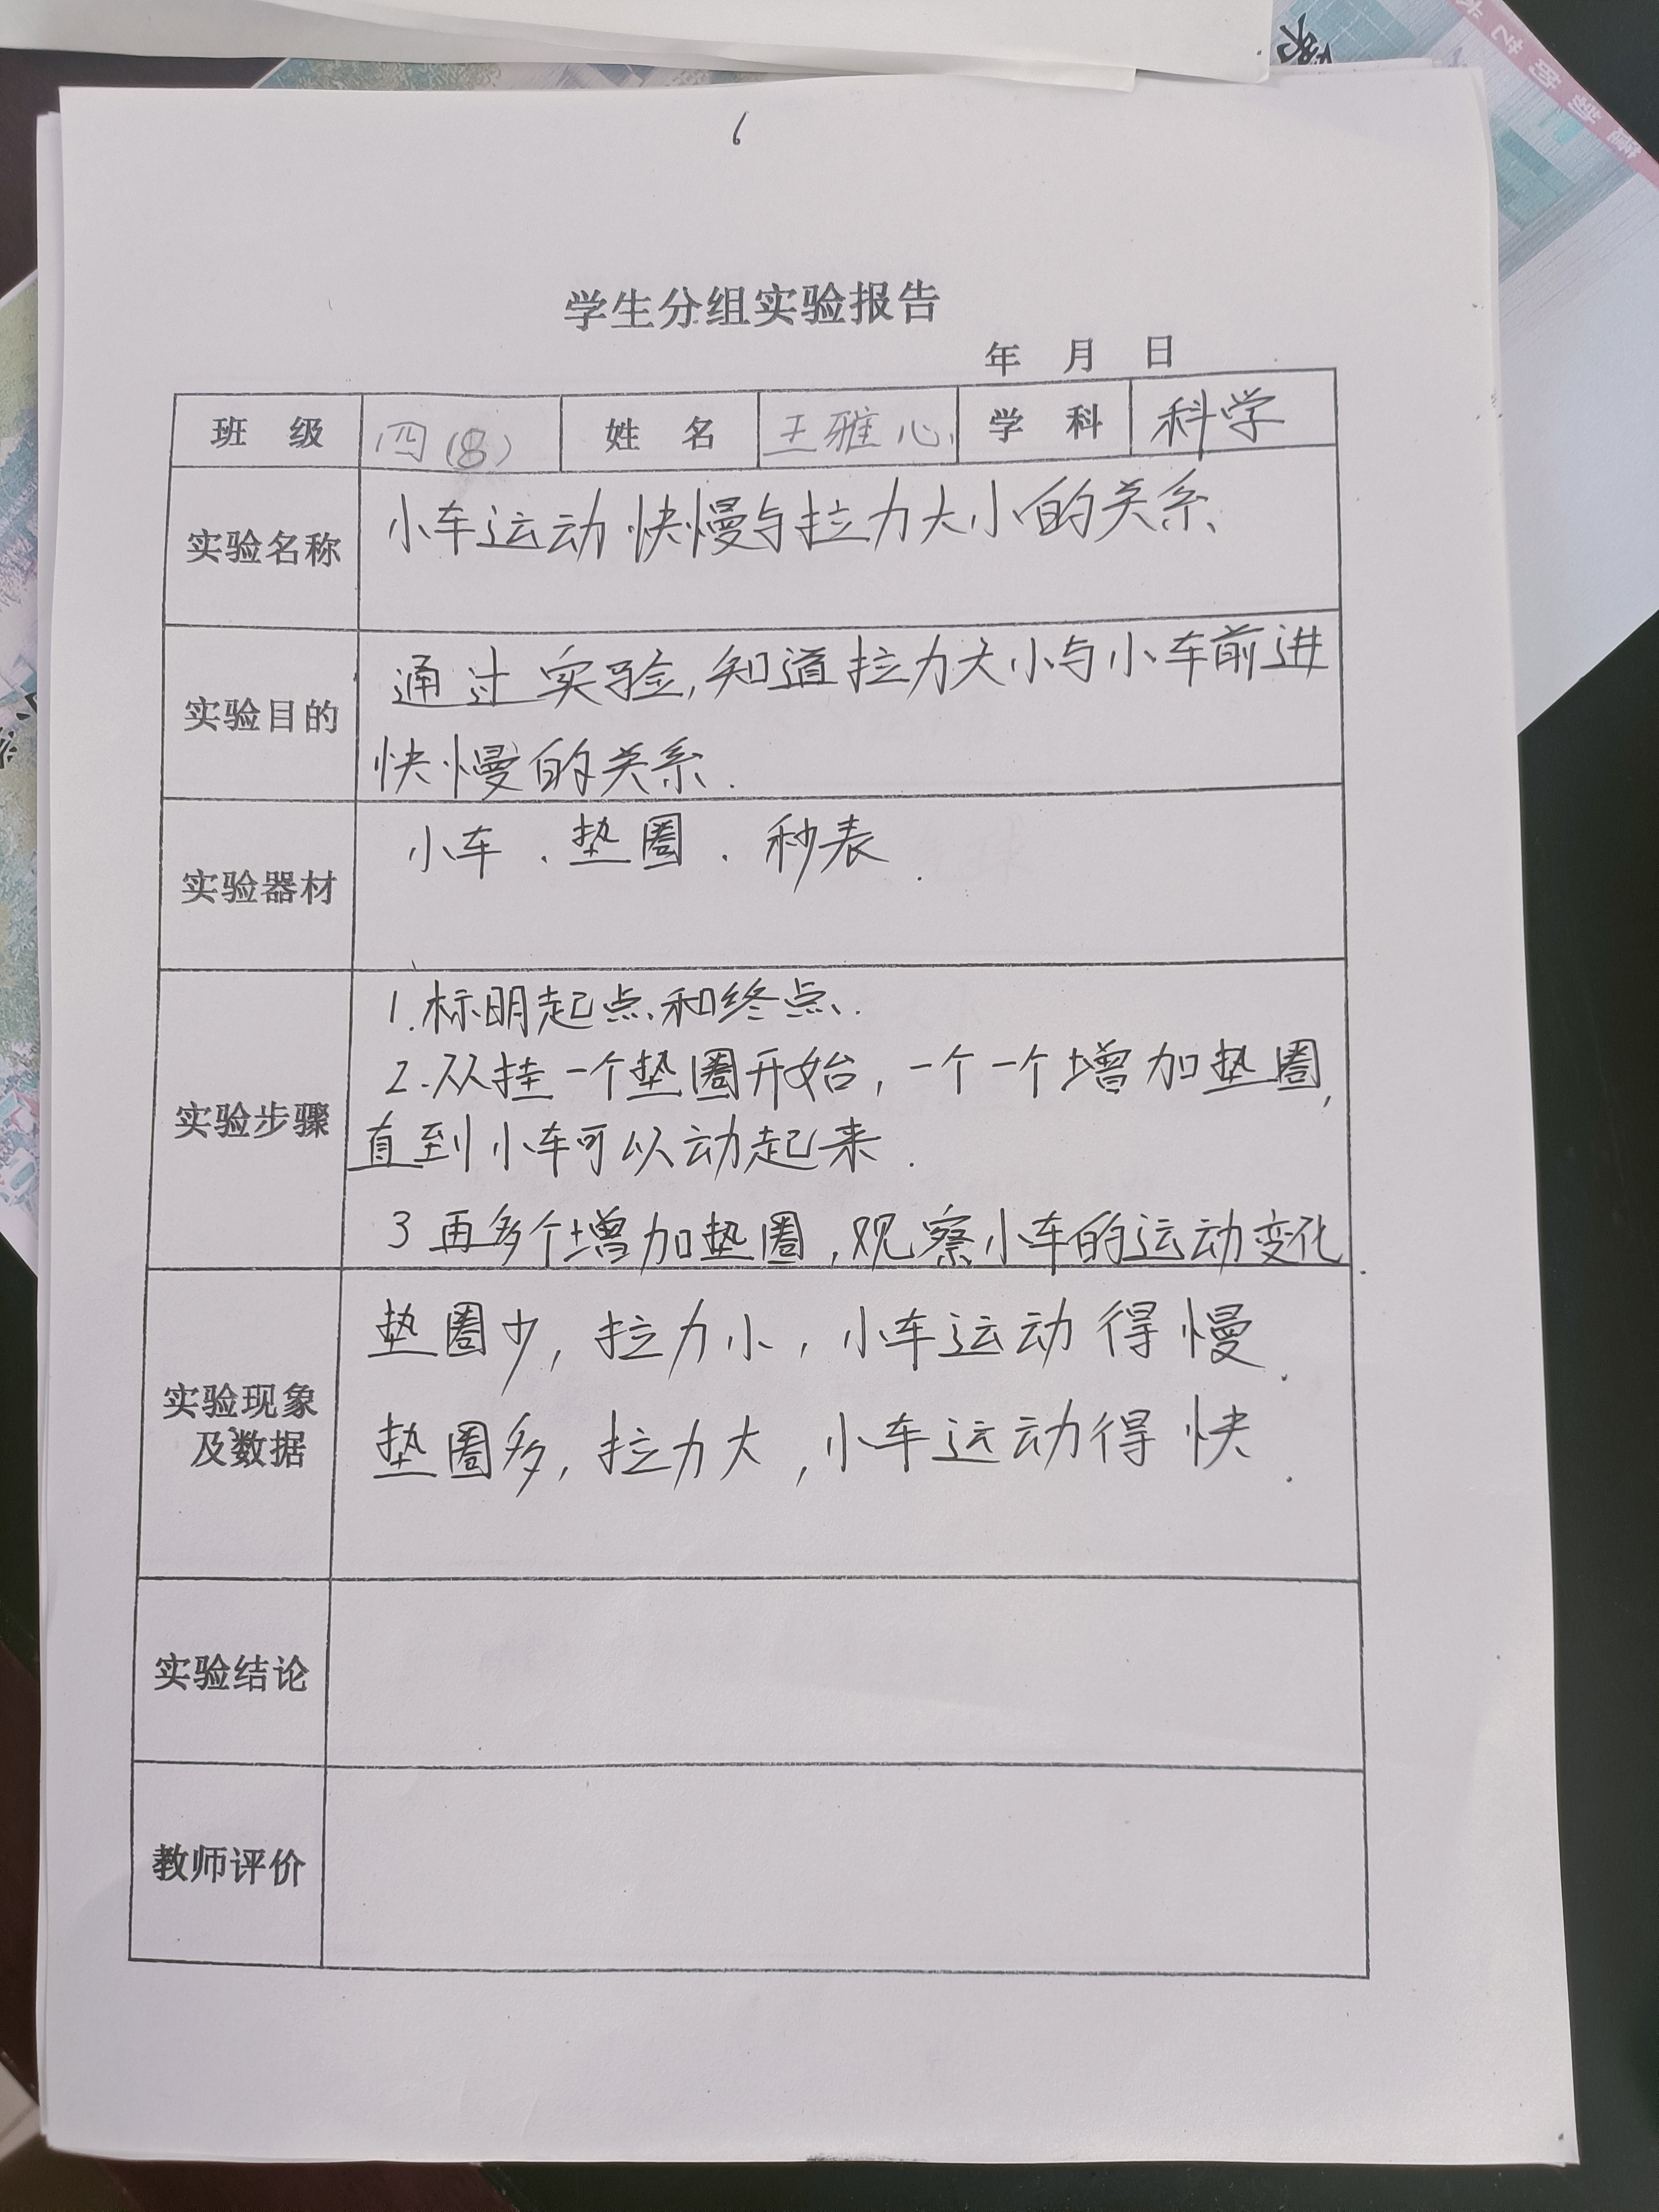 6
学生分组实验报告
年 月 日
班 级 四(8) 姓 名 王雅心 学 科 科学
实验名称 小车运动快慢与拉力大小的关系
实验目的 通过实验,知道拉力大小与小车前进
快慢的关系.
实验器材 小车.垫圈.秒表.
1.标明起点和终点.
2.从挂一个垫圈开始,一个一个增加垫圈,
实验步骤 直到小车可以动起来.
3再多个增加垫圈,观察小车的运动变化.
垫圈少,拉力小,小车运动得慢.
实验现象
及数据
垫圈多,拉力大,小车运动得快.
实验结论
教师评价